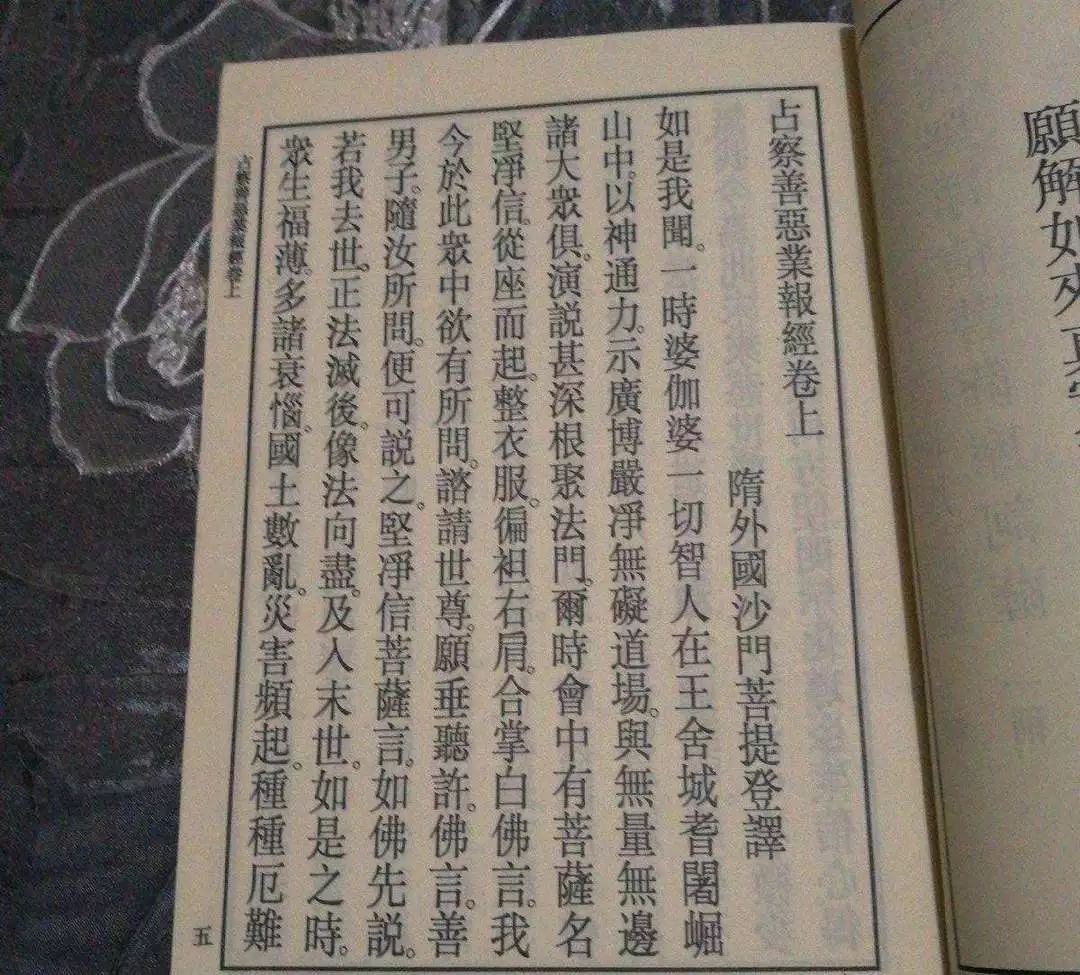 願解如來真
占察善惡業報經卷上
隋外國沙門菩提登譯
如是我聞。一時婆伽婆一切智人在王舍城耆闍崛
山中。以神通力。示廣博嚴淨無礙道場。與無量無邊
諸大眾俱。演說甚深根聚法門。爾時會中有菩薩名
堅淨信。從座而起。整衣服。偏袒右肩。合掌白佛言。我
今於此眾中欲有所問。諮請世尊。願垂聽許。佛言。善
男子。隨汝所問。便可說之。堅淨信菩薩言。如佛先說。
若我去世。正法滅後。像法向盡。及入末世。如是之時。
眾生福薄。多諸衰惱。國土數亂。災害頻起。種種厄難
占察善惡業報經卷上
五